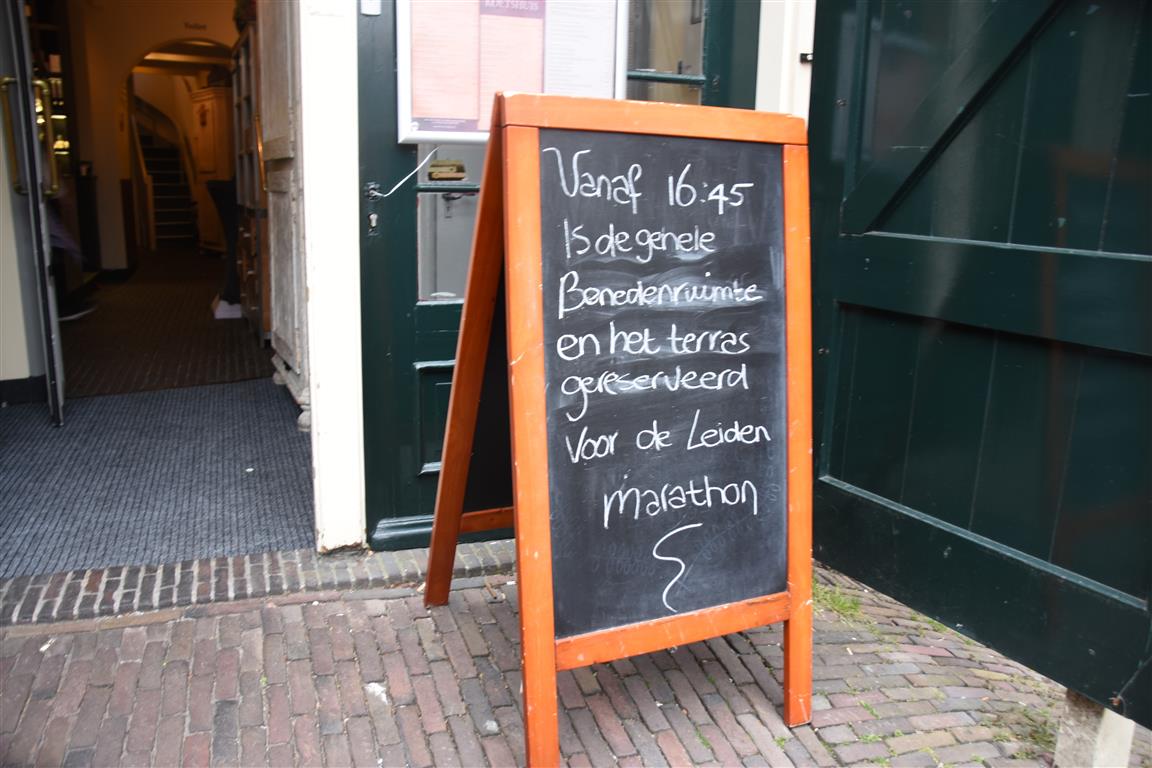 Toilet
KOETSHUIS
Vanaf 16:45
Is de gehele
Benedenruimte
en het terras
gereserveerd
Voor de Leiden
marathon